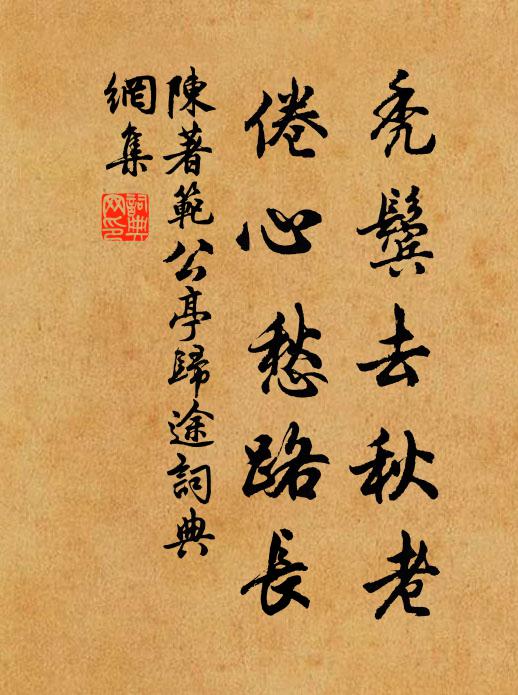 禿鬢去秋老
倦心愁路長
陳著範公亭歸途詞典
網集
詞典网印